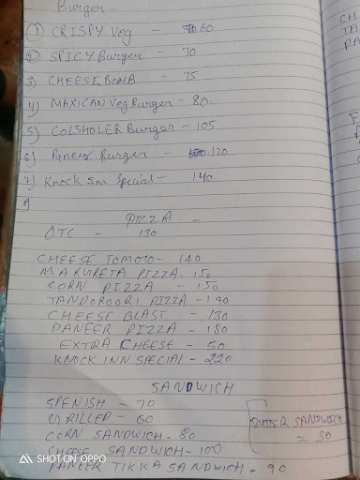 Burger -
1) CRISPY Veg - 60
2) SPICY Burger - 70
3) CHEESE BOMB - 75
4) MAXICAN Veg Burger - 80
5) COLSHOLER Burger - 105
6) Paneer Burger - 120
7) Knock Inn Special - 140
8)
PIZZA -
OTC - 130
CHEESE TOMOTO - 140
MARURETA PIZZA - 150
CORN PIZZA - 150
TANDOROORI PIZZA - 140
CHEESE BLAST - 150
PANEER PIZZA - 180
EXTRA CHEESE - 50
KNOCK INN SAECIAL - 220
SANDWICH
SPENISH - 70
GRILLED - 60
CORN SANDWICH - 80
CHEESE SANDWICH - 100
PANEER TIKKA SANDWICH - 90
SANDWICH
- 50
SHOT ON OPPO